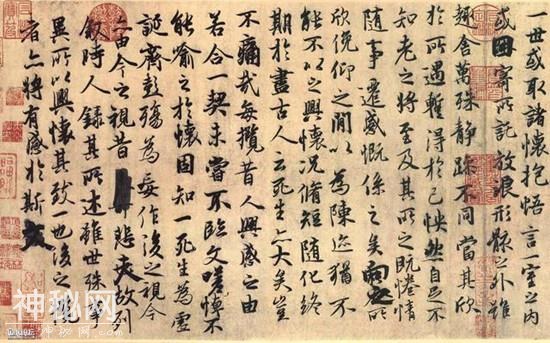 一世或取諸懷抱悟言一室之內
或因寄所託放浪形骸之外雖
趣舍萬殊靜躁不同當其欣
於所遇蹔得於己怏然自足不
知老之將至及其所之既惓情
隨事遷感慨係之矣向之所
欣俛仰之間以為陳迹猶不
能不以之興懷況脩短隨化終
期於盡古人云死生亦大矣豈
不痛哉每攬昔人興感之由
若合一契未嘗不臨文嗟悼不
能喻之於懷固知一死生為虛
誕齊彭殤為妄作後之視今
亦由今之視昔悲夫故列
敘時人錄其所述雖世殊事
異所以興懷其致一也後之攬
者亦將有感於斯文
神秘网